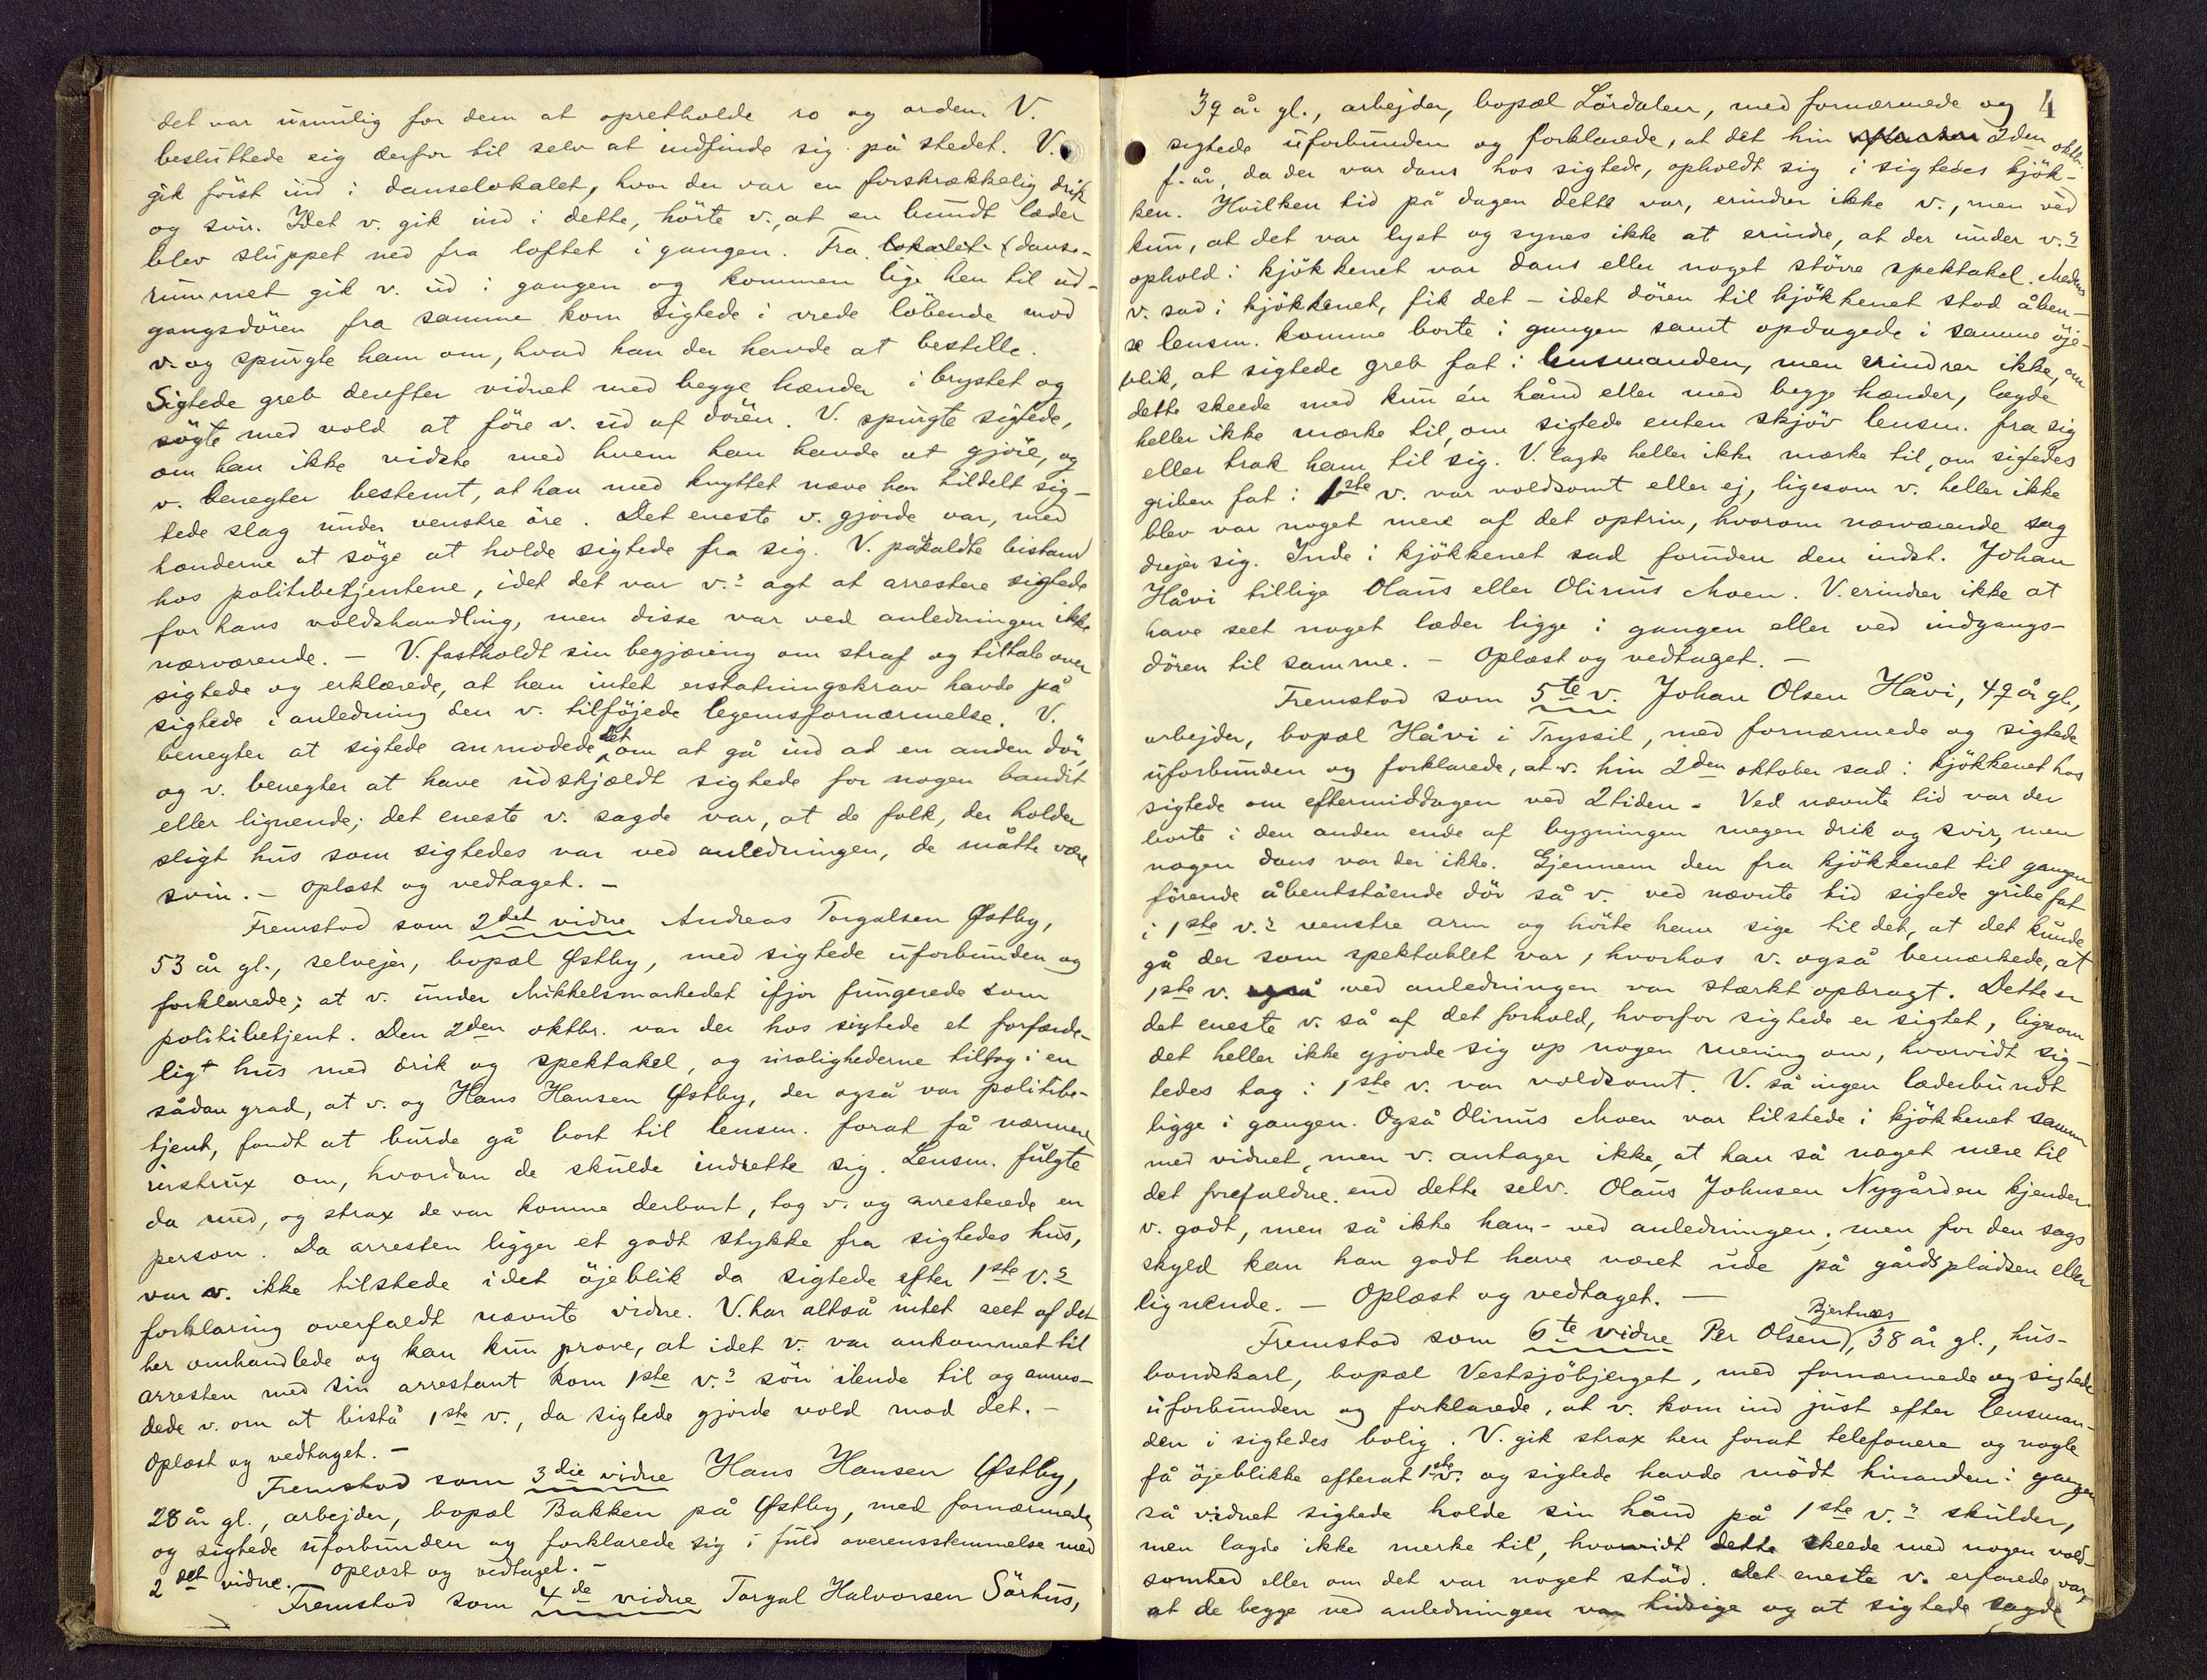 det var umulig for dem at opretholde ro og orden. V.
besluttede sig derfor til selv at indfinde sig på stedet. V.
gik först ind i danselokalet, hvor der var en forskrækkelig drik
og svir. Idet v. gik ind i dette, hörte v., at en bundt læder
blev sluppet ned fra loftet i gangen. Fra lokalet (danse-
rummet gik v. ud i gangen og kommen lige hen til ud-
gangsdören fra samme kom sigtede i vrede löbende mod
v. og spurgte ham om, hvad han der havde at bestille.
Sigtede greb derefter vidnet med begge hænder i brystet og
sögte med vold at före v. ud af dören. V. spurgte sigtede,
om han ikke vidste med hvem han havde at gjöre, og
v. benegter bestemt, at han med knyttet næve har tildelt sig-
tede slag under venstre öre. Det eneste v. gjorde var, med
hænderne at söge at holde sigtede fra sig. V. påkaldte bistand
hos politibetjentene, idet det var v.s agt at arrestere sigtede
for hans voldshandling, men disse var ved anledningen ikke
nærværende. – V. fastholdt sin begjæring om straf og tiltale over
sigtede og erklærede, at han intet erstatningskrav havde på
sigtede i anledning den v. tilföjede legemsfornærmelse. V.
benegter at sigtede anmodede det om at gå ind ad en anden dör,
og v. benegter at have udskjældt sigtede for nogen bandit
eller lignende; det eneste v. sagde var, at de folk, der holder
sligt hus som sigtedes var ved anledningen, de måtte være
svin. – Oplæst og vedtaget. –
Fremstod som 2det vidne Andreas Torgalsen Østby,
53 år gl., selvejer, bopæl Østby, med sigtede uforbunden og
forklarede; at v. under Mikkelsmarkedet ifjor fungerede som
politibetjent. Den 2den oktbr. var der hos sigtede et forfærde-
ligt hus med drik og spektakel, og urolighederne tiltog i en
sådan grad, at v. og Hans Hansen Østby, der også var politibe-
tjent, fandt at burde gå bort til lensm. forat få nærmere
instrux om, hvordan de skulde indrette sig. Lensm. fulgte
da med, og strax de var komne derbort, tog v. og arresterede en
person. Da arresten ligger et godt stykke fra sigtedes hus,
var v. ikke tilstede i det öjeblik da sigtede efter 1ste v.s
forklaring overfaldt nævnte vidne. V. har altså intet seet af det
her omhandlede og kan kun prove, at idet v. var ankommet til
arresten med sin arrestant kom 1ste v.s sön ilende til og anmo-
dede v. om at bistå 1ste v., da sigtede gjorde vold mod det. –
Oplæst og vedtaget. –
Fremstod som 3die vidne Hans Hansen Østby,
28 år gl., arbejder, bopæl Bakken på Østby, med fornærmede
og sigtede uforbunden og forklarede sig i fuld overensstemmelse med
2det vidne. Oplæst og vedtaget. –
Fremstod som 4de vidne Torgal Halvorsen Sörhus,
4
39 år gl., arbejder, bopæl Lördalen, med fornærmede og
sigtede uforbunden og forklarede, at det hin 2den oktbr.
f. år, da der var dans hos sigtede, opholdt sig i sigtedes kjök-
ken. Hvilken tid på dagen dette var, erindrer ikke v., men ved
kun, at det var lyst og synes ikke at erindre, at der under v.s
ophold i kjökkenet var dans eller noget större spektakel. Medens
v. sad i kjökkenet, fik det – idet dören til kjökkenet stod åben –
se lensm. komme borte i gangen samt opdagede i samme öje-
blik, at sigtede greb fat i lensmanden, men erindrer ikke, om
dette skeede med kun én hånd eller med begge hænder, lagde
heller ikke mærke til, om sigtede enten skjöv lensm. fra sig
eller trak ham til sig. V. lagde heller ikke mærke til, om sigtedes
griben fat i 1ste v. var voldsomt eller ej, ligesom v. heller ikke
blev var noget mere af det optrin, hvorom nærværende sag
drejer sig. Inde i kjökkenet sad foruden den indst. Johan
Håvi tillige Olaus eller Olinus Moen. V. erindrer ikke at
have seet noget læder ligge i gangen eller ved indgangs-
dören til samme. – Oplæst og vedtaget. –
Fremstod som 5te v. Johan Olsen Håvi, 49 år gl.,
arbejder, bopæl Håvi i Tryssil, med fornærmede og sigtede
uforbunden og forklarede, at v. hin 2den oktober sad i kjökkenet hos
sigtede om eftermiddagen ved 2tiden. Ved nævnte tid var der
borte i den anden ende af bygningen megen drik og svir, men
nogen dans var der ikke. Gjennem den fra kjökkenet til gangen
förende åbentstående dör så v. ved nævnte tid sigtede gribe fat
i 1ste v.s venstre arm og hörte ham sige til det, at det kunde
gå der som spektaklet var, hvorhos v. også bemærkede, at
1ste v. også ved anledningen var stærkt opbragt. Dette er
det eneste v. så af det forhold, hvorfor sigtede er sigtet, ligesom
det heller ikke gjorde sig op nogen mening om, hvorvidt sig-
tedes tag i 1ste v. var voldsomt. V. så ingen læderbundt
ligge i gangen. Også Olinus Moen var tilstede i kjökkenet sammen
med vidnet, men v. antager ikke, at han så noget mere til
det forefaldne end dette selv. Olaus Johnsen Nygården kjender
v. godt, men så ikke ham ved anledningen; men for den sags
skyld kan han godt have været ude på gårdspladsen eller
lignende. – Oplæst og vedtaget. –
Fremstod som 6te vidne Per Olsen Bjertnæs, 38 år gl., hus-
bondskarl, bopæl Vestsjöbjerget, med fornærmede og sigtede
uforbunden og forklarede, at v. kom ind just efter lensman-
den i sigtedes bolig. V. gik strax hen forat telefonere og nogle
få öjeblikke efterat 1ste v. og sigtede havde mödt hinanden i gangen
så vidnet sigtede holde sin hånd på 1ste v.s skulder,
men lagde ikke merke til, hvorvidt dette skeede med nogen vold-
somhed eller om det var noget stöd. Det eneste v. erfarede var,
at de begge ved anledningen var hidsige og at sigtede sagde